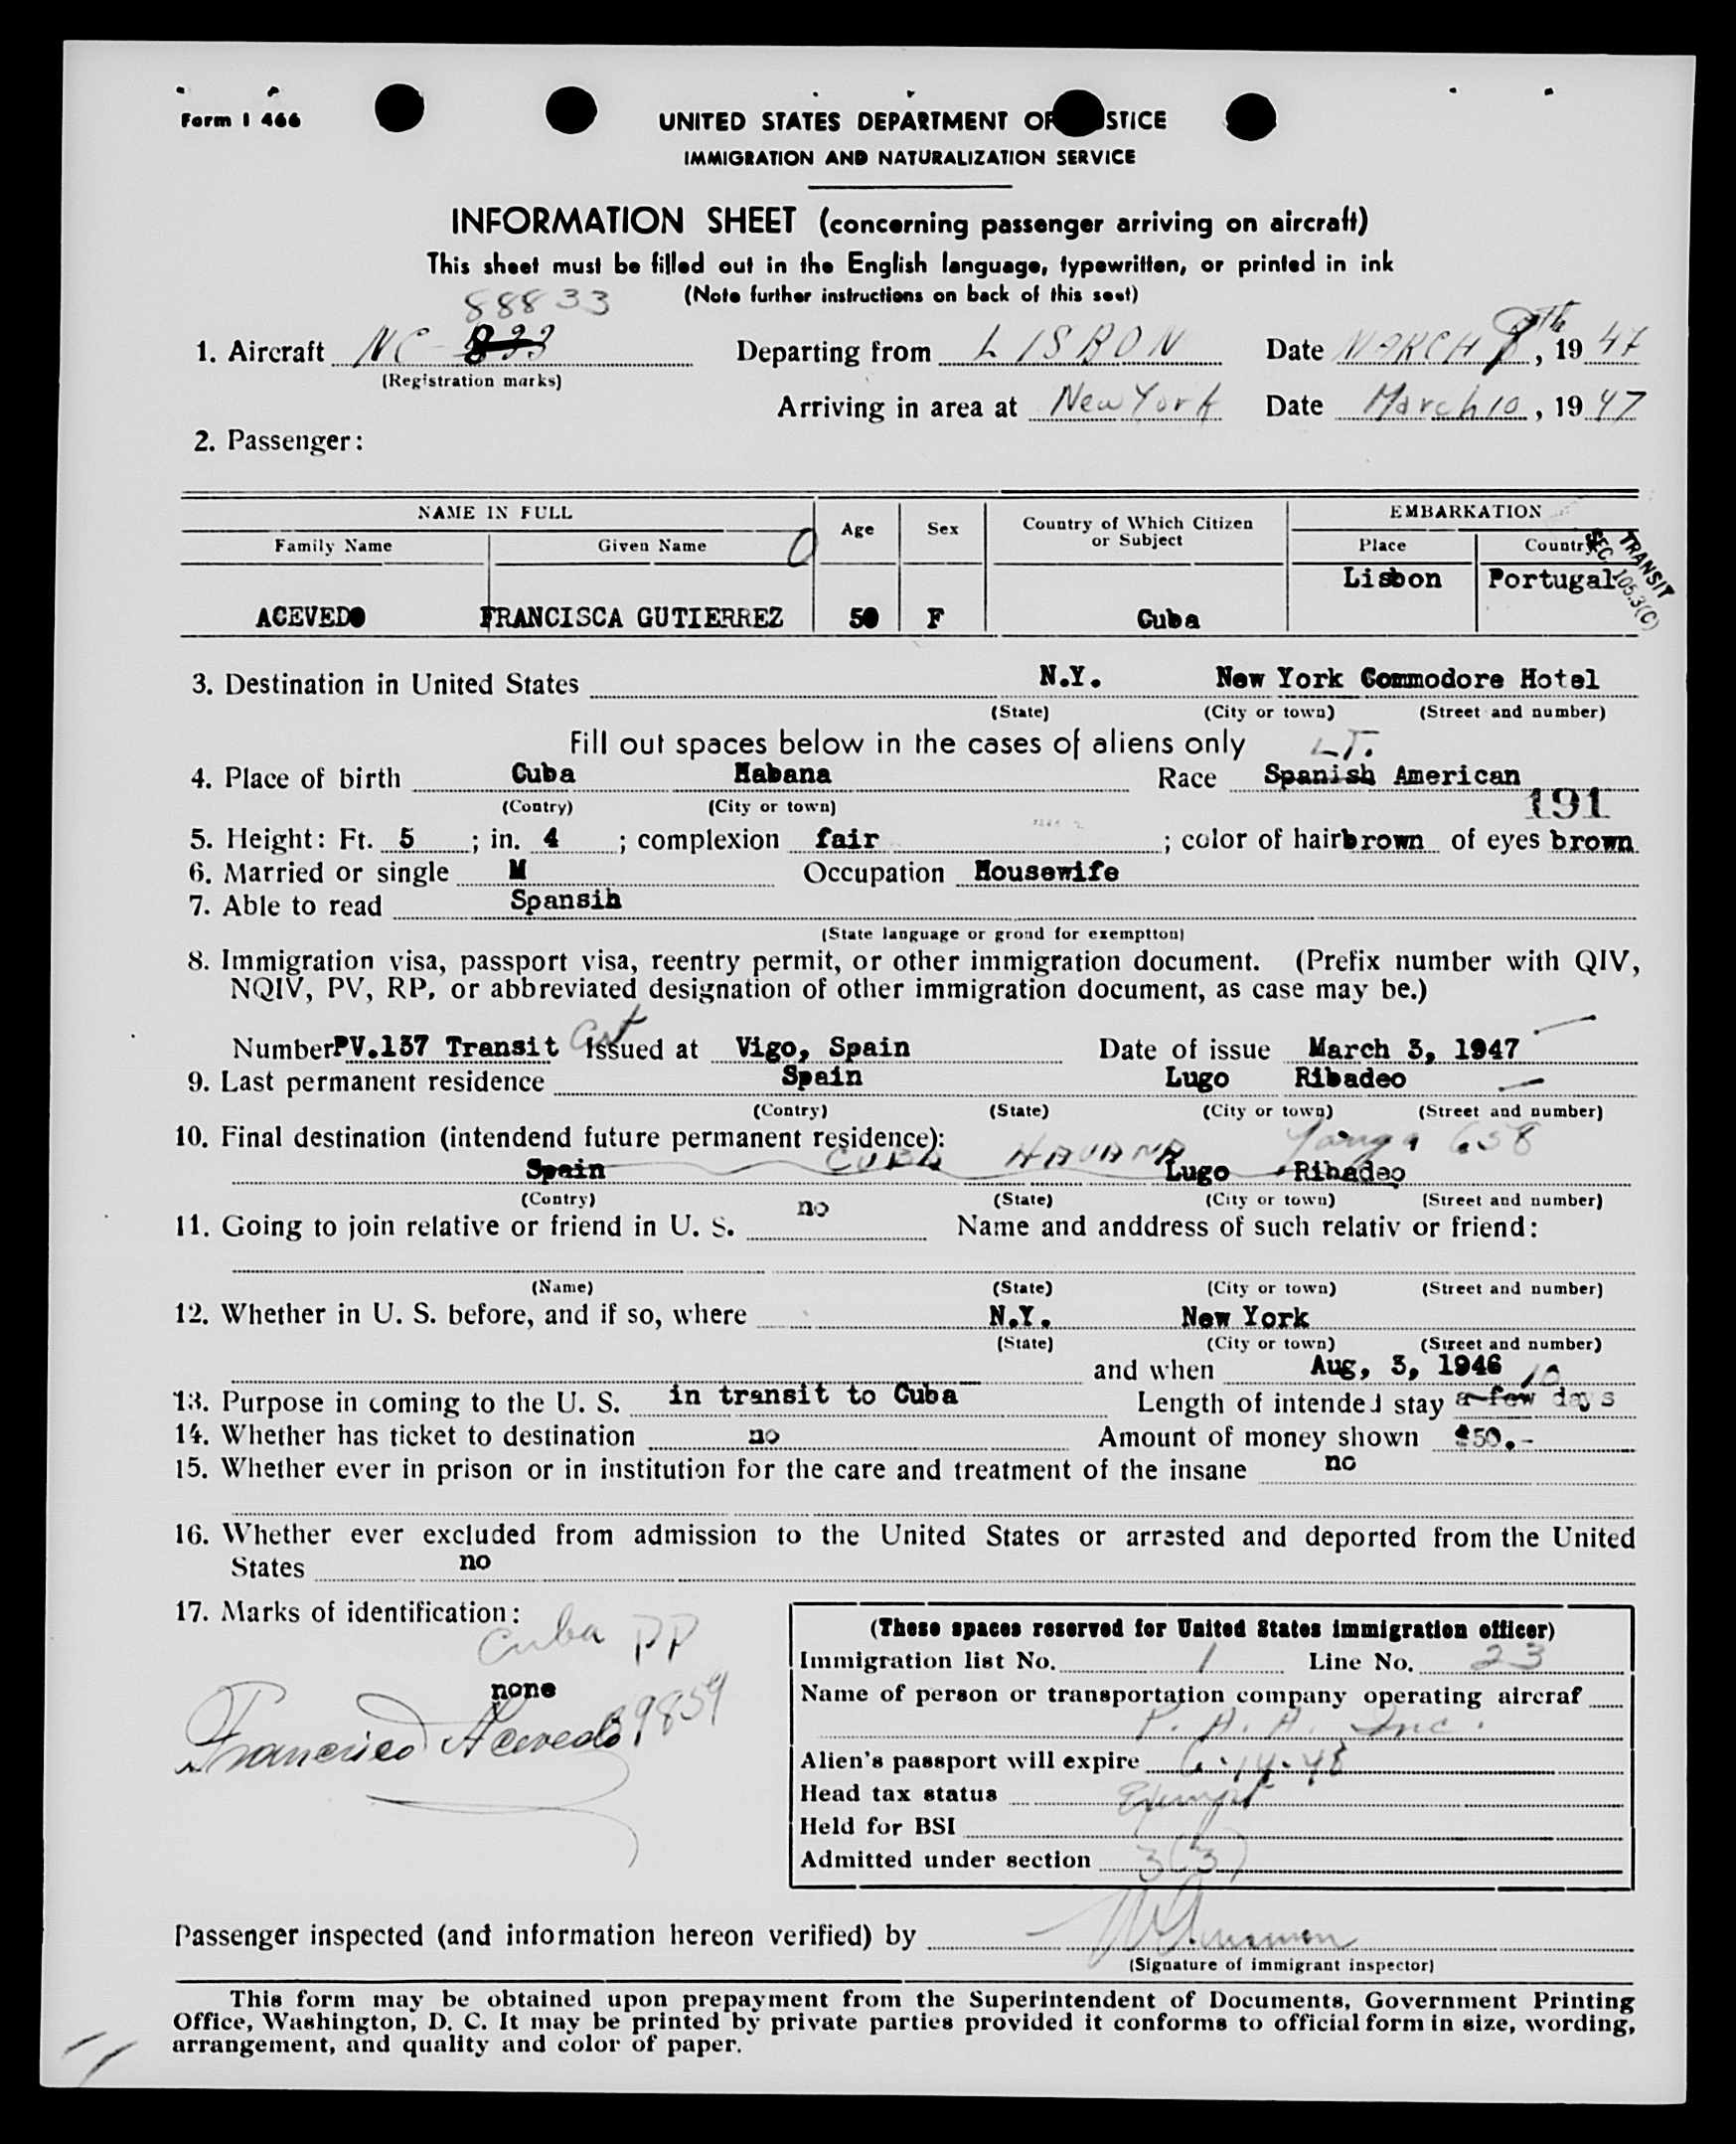 Form I 466
UNITED STATES DEPARTMENT OF STICE
IMMIGRATION AND NATURALIZATION SERVICE
INFORMATION SHEET (concerning passenger arriving on aircraft)
This sheet must be filled out in the English language, typewritten, or printed in ink
(Note further instructions on back of this seet)
88833
1. Aircraft NC-833 Departing from LISBON Date MARCH 8th, 1947
(Registration marks)
Arriving in area at New York Date March 10, 1947
2. Passenger:
NAME IN FULL Age Sex Country of Which Citizen or Subject EMBARKATION
Family Name Given Name Place Country
TRANSIT
SEC. 105.3(C)
Lisbon Portugal
ACEVEDO FRANCISCA GUTIERREZ 50 F Cuba
3. Destination in United States N.Y. New York Commodore Hotel
(State) (City or town) (Street and number)
Fill out spaces below in the cases of aliens only LT.
4. Place of birth Cuba Habana Race Spanish American
(Contry) (City or town)
191
5. Height: Ft. 5 ; in. 4 ; complexion fair ; color of hair brown of eyes brown
6. Married or single M Occupation Housewife
7. Able to read Spansih
(State language or grond for exemptton)
8. Immigration visa, passport visa, reentry permit, or other immigration document. (Prefix number with QIV,
NQIV, PV, RP, or abbreviated designation of other immigration document, as case may be.)
Number PV.137 Transit Issued at Vigo, Spain Date of issue March 3, 1947
9. Last permanent residence Spain Lugo Ribadeo
(Contry) (State) (City or town) (Street and number)
10. Final destination (intendend future permanent residence):
CUBA HAVANA 658
Spain Lugo Ribadeo
(Contry) (State) (City or town) (Street and number)
11. Going to join relative or friend in U. S. no Name and anddress of such relativ or friend:
(Name) (State) (City or town) (Street and number)
12. Whether in U. S. before, and if so, where N.Y. New York
(State) (City or town) (Street and number)
and when Aug, 3, 1946
10
13. Purpose in coming to the U. S. in transit to Cuba Length of intended stay a few days
14. Whether has ticket to destination no Amount of money shown $50.-
15. Whether ever in prison or in institution for the care and treatment of the insane no
16. Whether ever excluded from admission to the United States or arrested and deported from the United
States no
17. Marks of identification:
Cuba PP
none
39859
Francisca Acevedo
(These spaces reserved for United States immigration officer)
Immigration list No. 1 Line No. 23
Name of person or transportation company operating aircraf
P. A. A. Inc.
Alien's passport will expire 6-14-48
Head tax status Exempt
Held for BSI
Admitted under section 3(3)
Passenger inspected (and information hereon verified) by
(Signature of immigrant inspector)
This form may be obtained upon prepayment from the Superintendent of Documents, Government Printing
Office, Washington, D. C. It may be printed by private parties provided it conforms to official form in size, wording,
arrangement, and quality and color of paper.